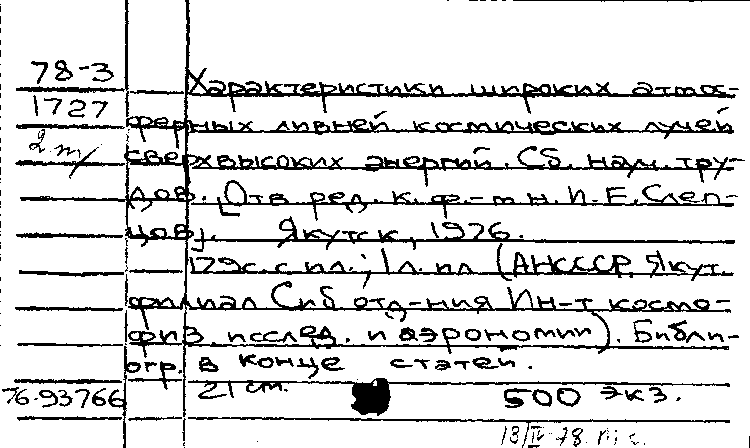 78-3
Характеристики широких атмос-
1727
ферных ливней космических лучей
2 т/
сверхвысоких энергий. Сб. науч. тру-
дов. [Отв ред. к. ф.-м н. И. Е. Слеп-
цов]. Якутск, 1976.
179с. с ил.; 1л. ил (АН СССР. Якут.
филиал Сиб отд-ния Ин-т космо-
физ. исслед. и аэрономии). Библи-
огр. в конце статей.
76-93766 21 см. 500 экз.
13/IV-78.